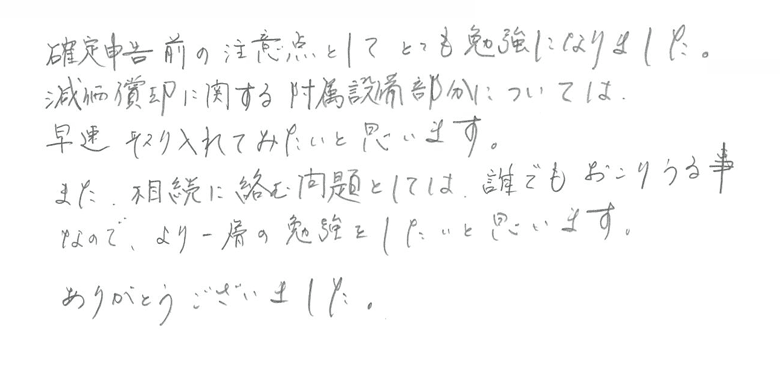 確定申告前の注意点としてとても勉強になりました。
減価償却に関する附属設備部分については、
早速取り入れてみたいと思います。
また、相続に絡む問題としては、誰でもおこりうる事
なので、より一層の勉強をしたいと思います。
ありがとうございました。